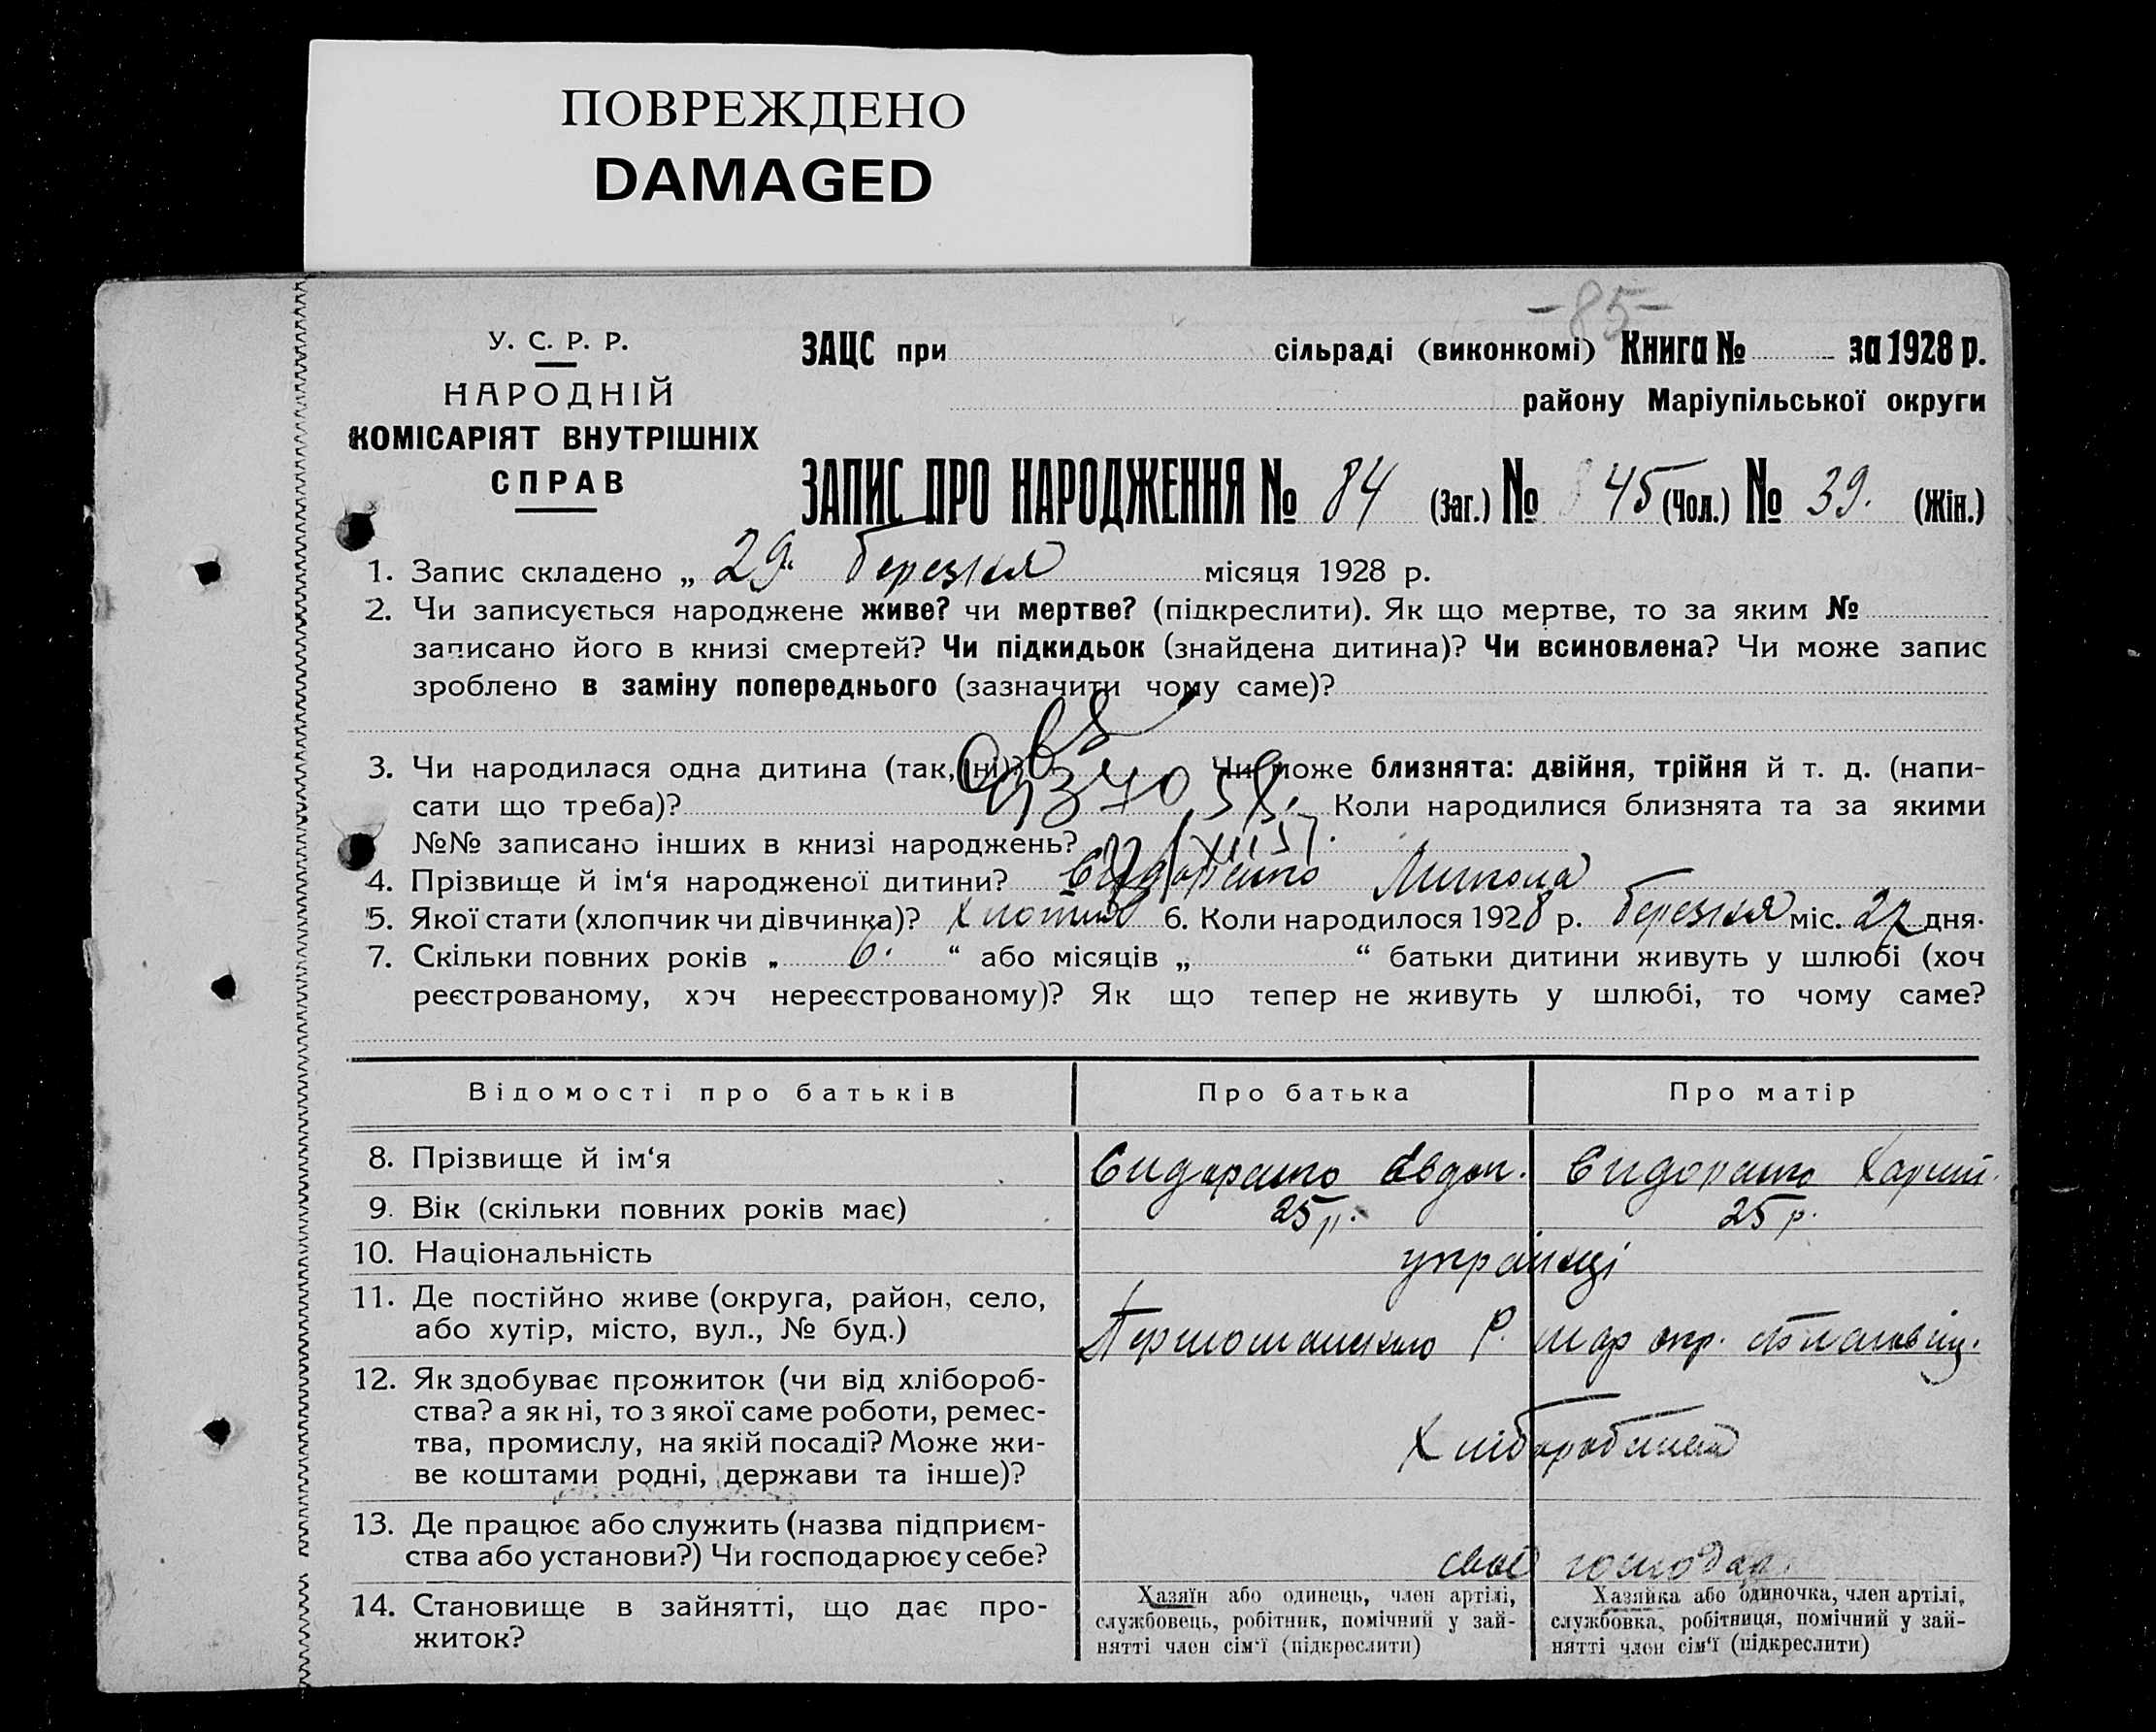 ПОВРЕЖДЕНО
DAMAGED
-85-
У. С. Р. Р.
НАРОДНІЙ
КОМІСАРІЯТ ВНУТРІШНІХ
СПРАВ
ЗАЦС при сільраді (виконкомі) Книга № за 1928 р.
району Маріупільської округи
ЗАПИС ПРО НАРОДЖЕННЯ № 84 (Заг.) № 45 (Чол.) № 39. (Жін.)
1. Запис складено „ 29 “ березня місяця 1928 р.
2. Чи записується народжене живе? чи мертве? (підкреслити). Як що мертве, то за яким №
записано його в книзі смертей? Чи підкидьок (знайдена дитина)? Чи всиновлена? Чи може запис
зроблено в заміну попереднього (зазначити чому саме)?
3. Чи народилася одна дитина (так, ні)? Чи може близнята: двійня, трійня й т. д. (напи-
сати що треба)? Коли народилися близнята та за якими
№№ записано інших в книзі народжень?
4. Прізвище й ім‘я народженої дитини? Сидоренко Микола
5. Якої стати (хлопчик чи дівчинка)? Хлопчик 6. Коли народилося 1928 р. березня міс. 27 дня.
7. Скільки повних років „ 6. “ або місяців „ “ батьки дитини живуть у шлюбі (хоч
реєстрованому, хоч нереєстрованому)? Як що тепер не живуть у шлюбі, то чому саме?
Відомості про батьків Про батька Про матір
8. Прізвище й ім‘я Сидоренко Евдок. Сидоренко Харит.
9. Вік (скільки повних років має) 25 р. 25 р.
10. Національність українці
11. Де постійно живе (округа, район, село,
або хутір, місто, вул., № буд.) Р. мар окр.
12. Як здобуває прожиток (чи від хлібороб-
ства? а як ні, то з якої саме роботи, ремес-
тва, промислу, на якій посаді? Може жи-
ве коштами родні, держави та інше)?
13. Де працює або служить (назва підприєм-
ства або установи?) Чи господарює у себе? своє господар.
14. Становище в зайнятті, що дає про-
житок?
Хазяїн або одинець, член артілі,
службовець, робітник, помічний у зай-
нятті член сім‘ї (підкреслити)
Хазяйка або одиночка, член артілі,
службовка, робітниця, помічний у зай-
нятті член сім‘ї (підкреслити)